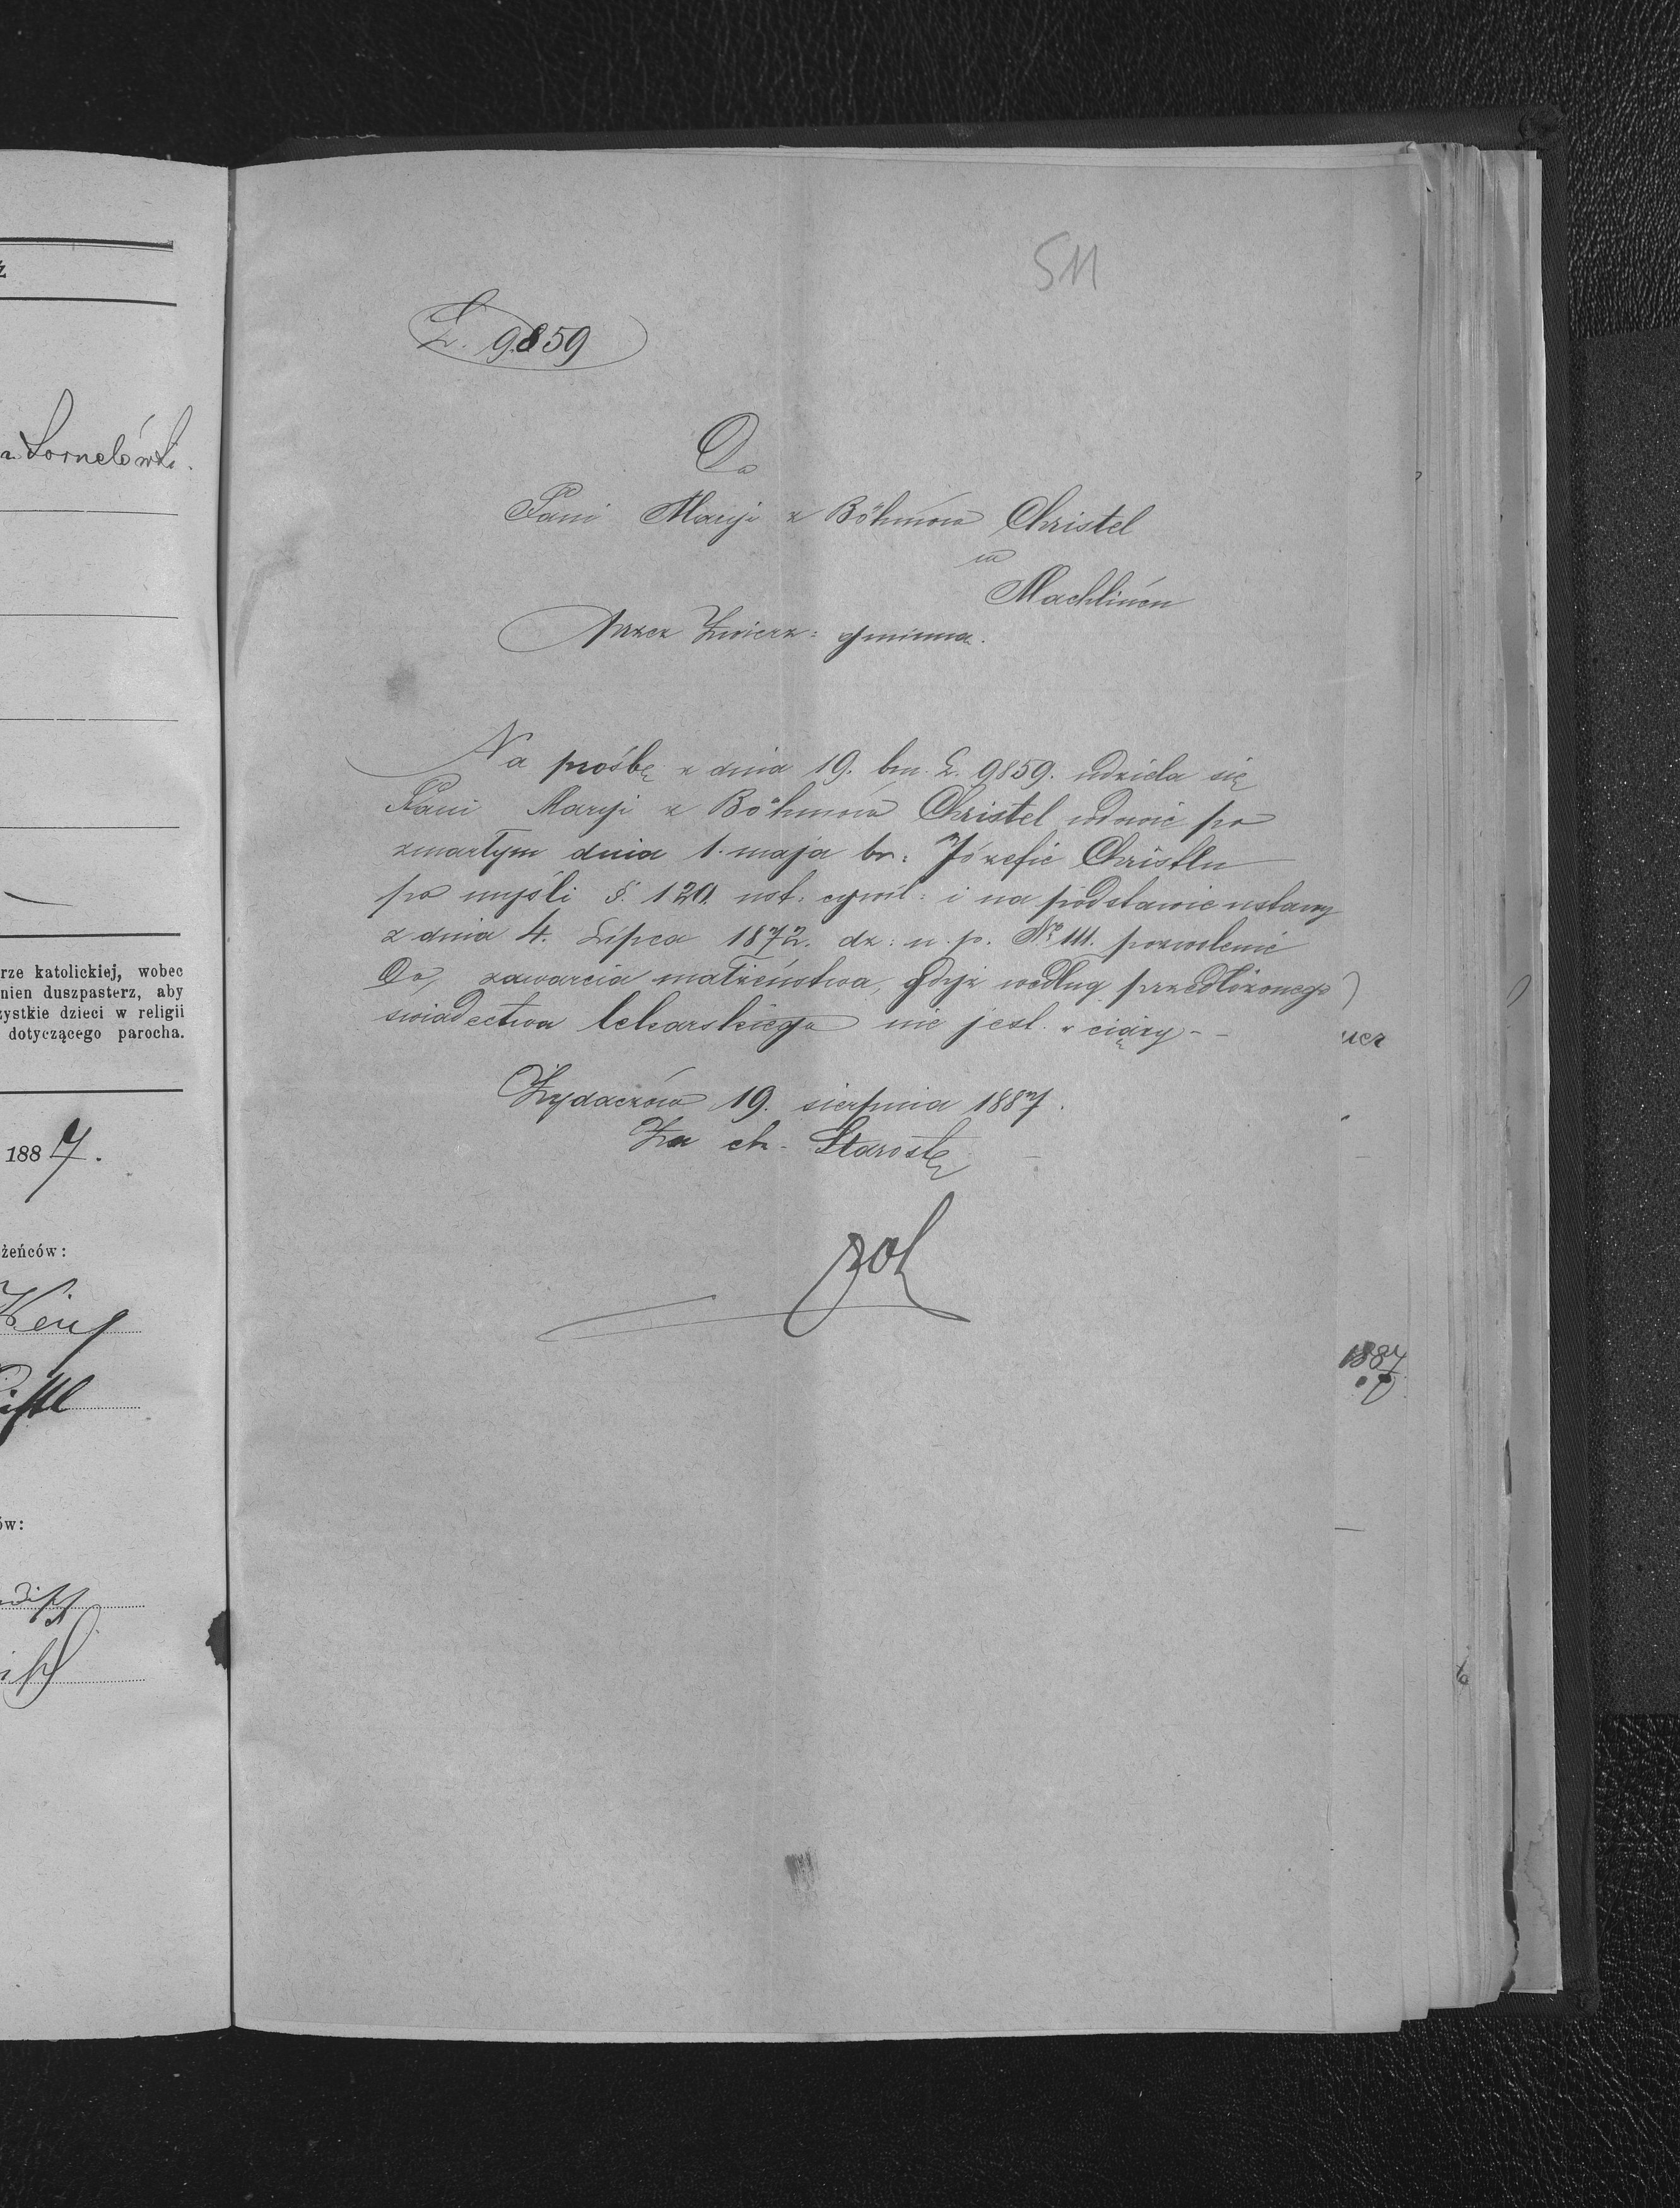 511
L. 9859
Do
Pani Maryi z Böhmów Christel
w
Machlińcu
Przez Zwierz: gminną.
Na prośbę z dnia 19. bm. L. 9859. udziela się
Pani Maryi z Böhmów Christel wdowie po
zmarłym dnia 1. maja br: Józefie Christlu
po myśli §. 120. ust: cywil: i na podstawie ustawy
z dnia 4. Lipca 1872. dz: u. p. No 111. pozwolenie
Do zawarcia małżeństwa, gdyż według przedłożonego
świadectwa lekarskiego nie jest w ciąży -
Żydaczów 19. sierpnia 1887.
Za ck. Starostę
rze katolickiej, wobec
nien duszpasterz, aby
zystkie dzieci w religii
dotyczącego parocha.
1887.
żeńców:
ów:
1887